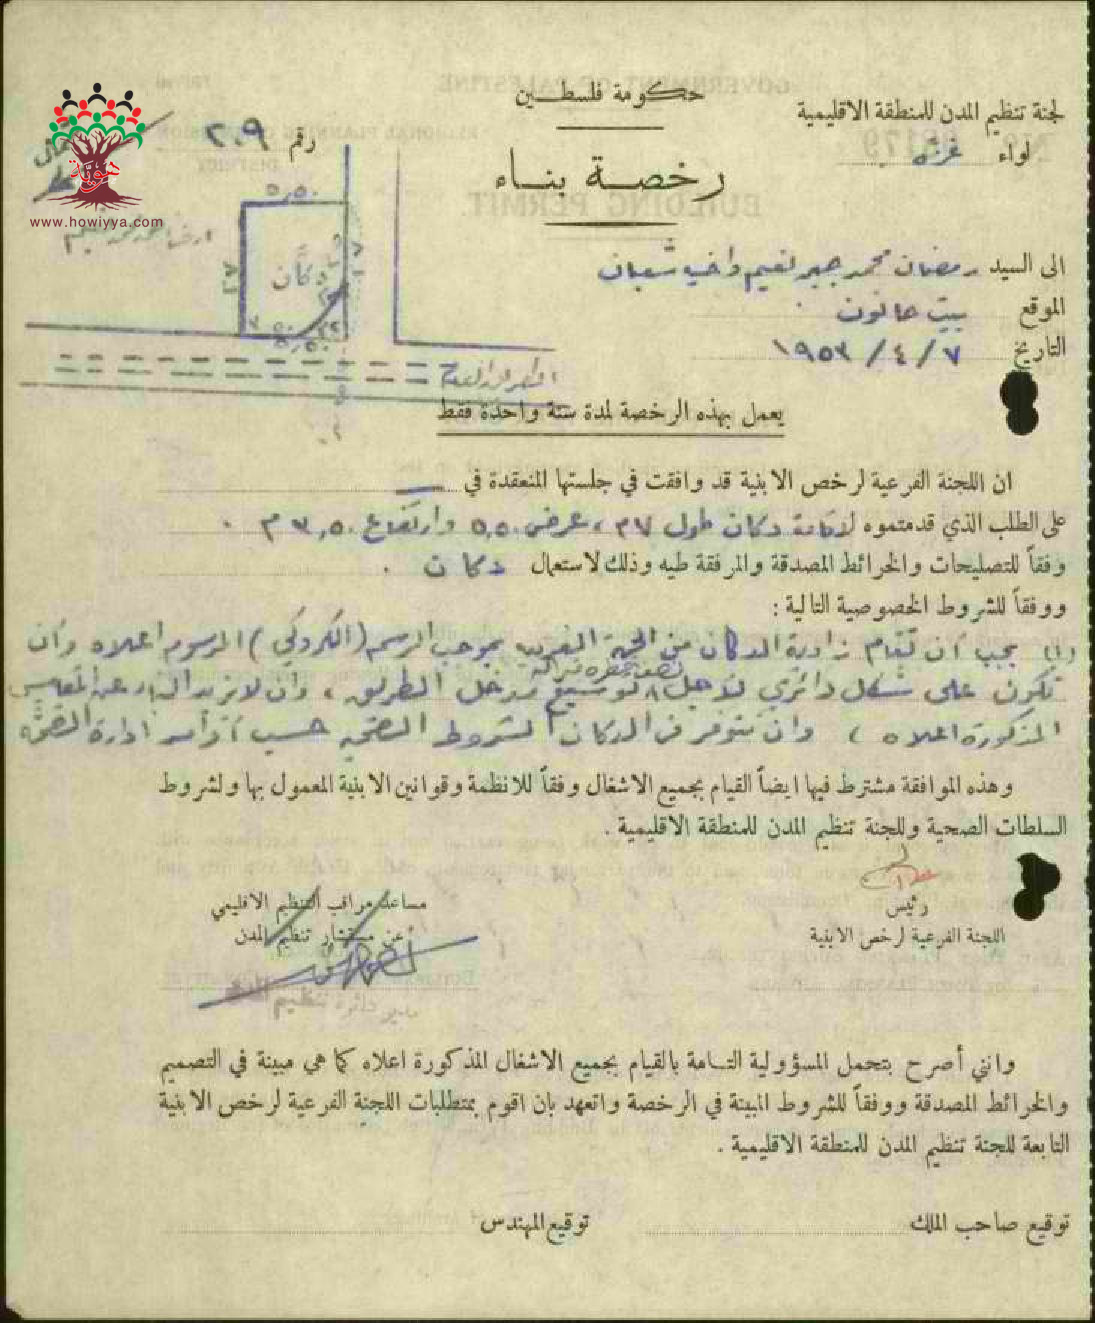 حكومة فلسطين
لجنة تنظيم المدن للمنطقة الاقليمية
لواء غزة
رقم ٢٠٩
رخصة بناء
هوية
www.howiyya.com
٥,٥٠
دكان
الى السيد رمضان محمد جبر نعيم واخيه شعبان
الموقع بيت حانون
التاريخ ٧ / ٤ / ١٩٥٣
يعمل بهذه الرخصة لمدة سنة واحدة فقط
ان اللجنة الفرعية لرخص الابنية قد وافقت في جلستها المنعقدة في
على الطلب الذي قدمتموه لاقامة دكان طول ٣٧ ، عرض ٥,٥٠ وارتفاع ٣,٥٠ م .
وفقاً للتصليحات والخرائط المصدقة والمرفقة طيه وذلك لاستعمال دكان .
ووفقاً للشروط الخصوصية التالية :
(١) يجب ان تقام زاوية الدكان من الجهة الغربية بموجب الرسم (الكروكي) المرسوم اعلاه وان
تكون على شكل دائري لاجل توسيع مدخل الطريق ، وان لا تزيد الدار عن المقاييس
المذكورة اعلاه ، وان تتوفر في الدكان الشروط الصحية حسب اوامر ادارة الصحة
وهذه الموافقة مشترط فيها ايضاً القيام بجميع الاشغال وفقاً للانظمة وقوانين الابنية المعمول بها ولشروط
السلطات الصحية وللجنة تنظيم المدن للمنطقة الاقليمية .
رئيس
اللجنة الفرعية لرخص الابنية
مساعد مراقب التنظيم الاقليمي
عن مستشار تنظيم المدن
مدير دائرة تنظيم
وانني أصرح بتحمل المسؤولية التامة بالقيام بجميع الاشغال المذكورة اعلاه كما هي مبينة في التصميم
والخرائط المصدقة ووفقاً للشروط المبينة في الرخصة واتعهد بان اقوم بمتطلبات اللجنة الفرعية لرخص الابنية
التابعة للجنة تنظيم المدن للمنطقة الاقليمية .
توقيع صاحب الملك
توقيع المهندس